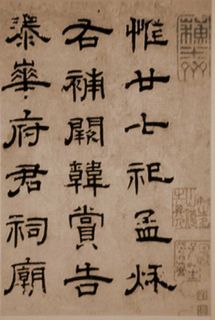 惟廿七祀孟秋
右補闕韓賞告
泰華府君祠廟